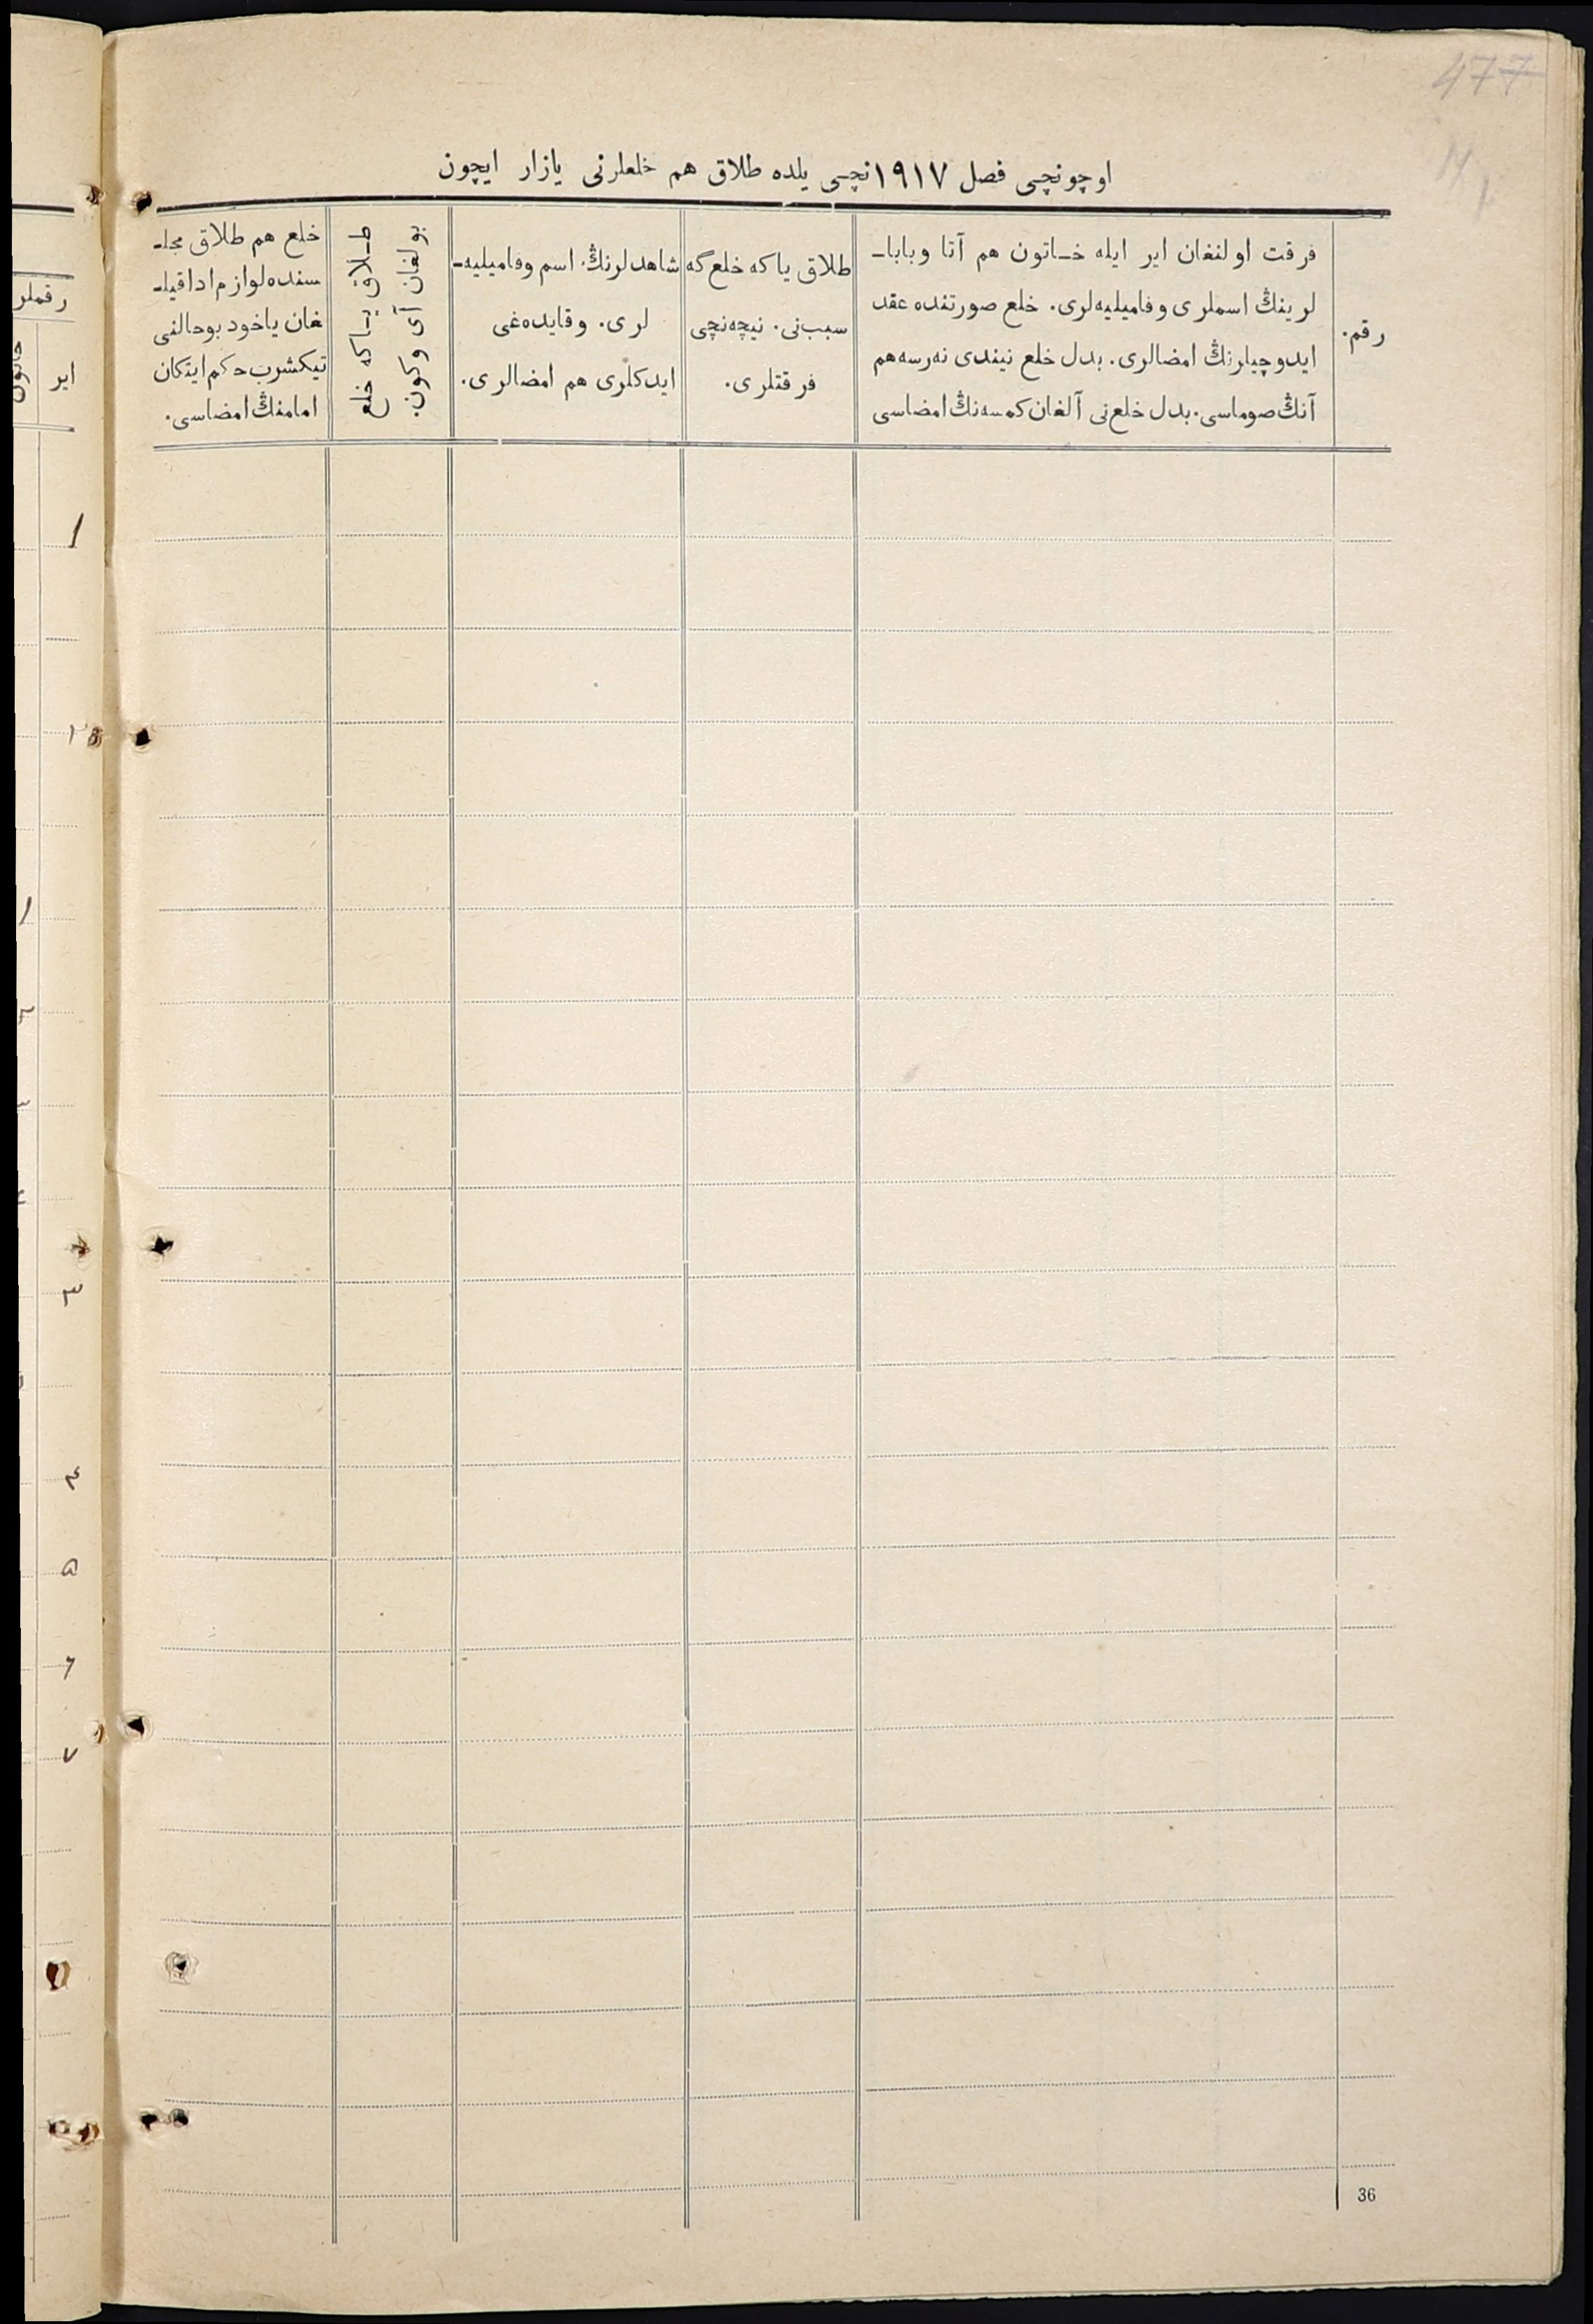 477
اوچونچی فصل ۱۹۱۷نچی یلده طلاق هم خلعلرنی یازار ایچون
رقم.
فرقت اولنغان ایر ایله خـاتون هم آتا وبابا-
لرینڭ اسملری وفامیلیه‌لری. خلع صورتنده عقد
ایدوچیلرنڭ امضالری. بدل خلع نیندی نه‌رسه‌هم
آنڭ صوماسی. بدل خلع‌نی آلغان کمسه‌نڭ امضاسی
طلاق یا که خلع گه
سبب‌نی. نیچه‌نچی
فرقتلری.
شاهدلرنڭ اسم وفامیلیه-
لری. وقایده‌غی
ایدکلری هم امضالری.
طـلاق یـا که خلع
بولغان آی وکون.
خلع هم طلاق مجلـ
سنده لوازم ادا قیلـ
غان یاخود بوحالنی
تیکشرب حکم ایتکان
امامنڭ امضاسی.
36
رقملر
ایر
خاتون
۱
۲
۳
۴
۵
۶
۷